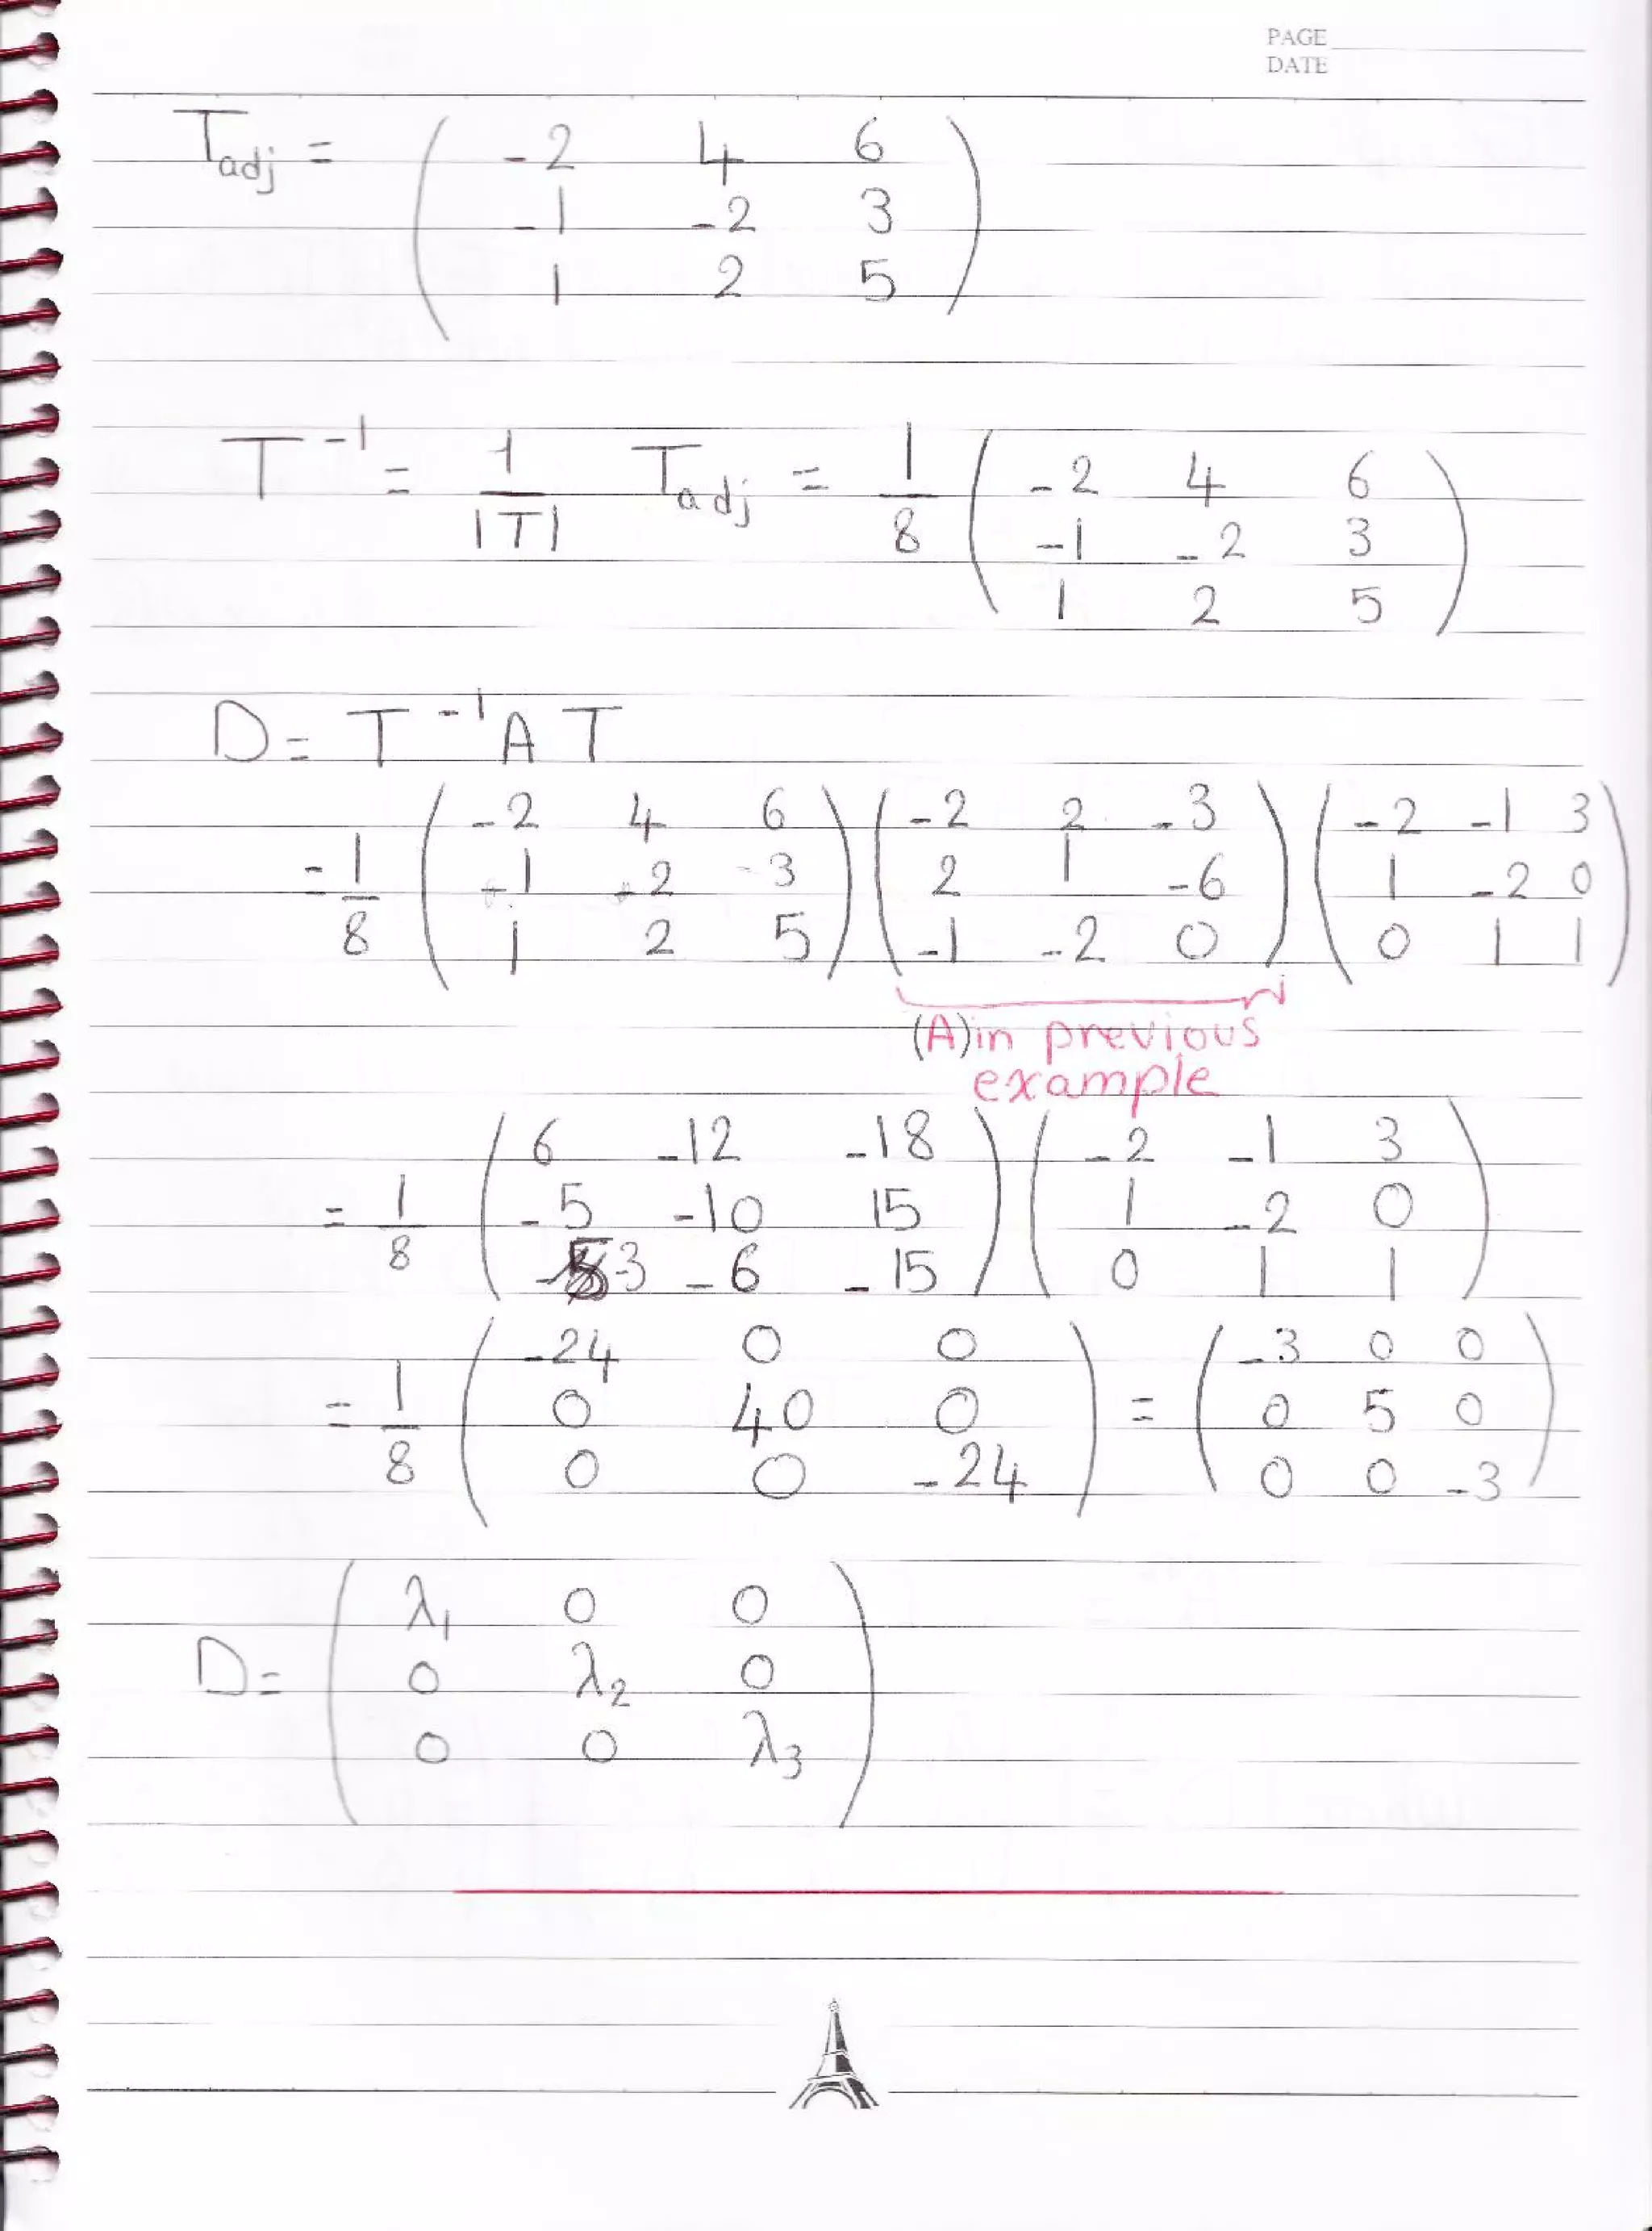 PAGE
DATE
T_adj = ( -2 4 6
-1 -2 3
1 2 5 )
T^-1 = 1/|T| T_adj = 1/8 ( -2 4 6
-1 -2 3
1 2 5 )
D = T^-1 A T
= 1/8 ( -2 4 6 ) ( -2 2 -3 ) ( -2 -1 3 )
( -1 -2 3 ) ( 2 1 -6 ) ( 1 -2 0 )
( 1 2 5 ) ( -1 -2 0 ) ( 0 1 1 )
(A) in previous
example
= 1/8 ( 6 -12 -18 ) ( -2 -1 3 )
( -5 -10 15 ) ( 1 -2 0 )
( -3 -6 -15 ) ( 0 1 1 )
= 1/8 ( -24 0 0 ) = ( -3 0 0 )
( 0 40 0 ) ( 0 5 0 )
( 0 0 -24 ) ( 0 0 -3 )
D = ( λ1 0 0
0 λ2 0
0 0 λ3 )